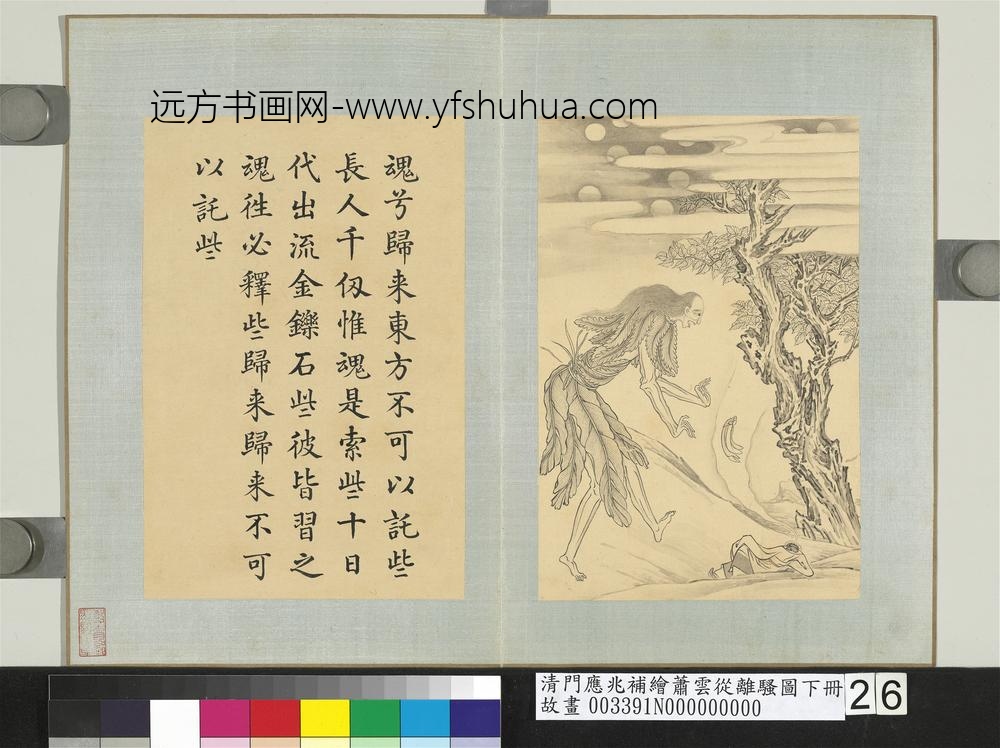 远方书画网-www.yfshuhua.com
魂兮歸来東方不可以託些
長人千仭惟魂是索些十日
代出流金鑠石些彼皆習之
魂徃必釋些歸来歸来不可
以託些
清門應兆補繪蕭雲從離騷圖下冊
故畫 003391N000000000
26